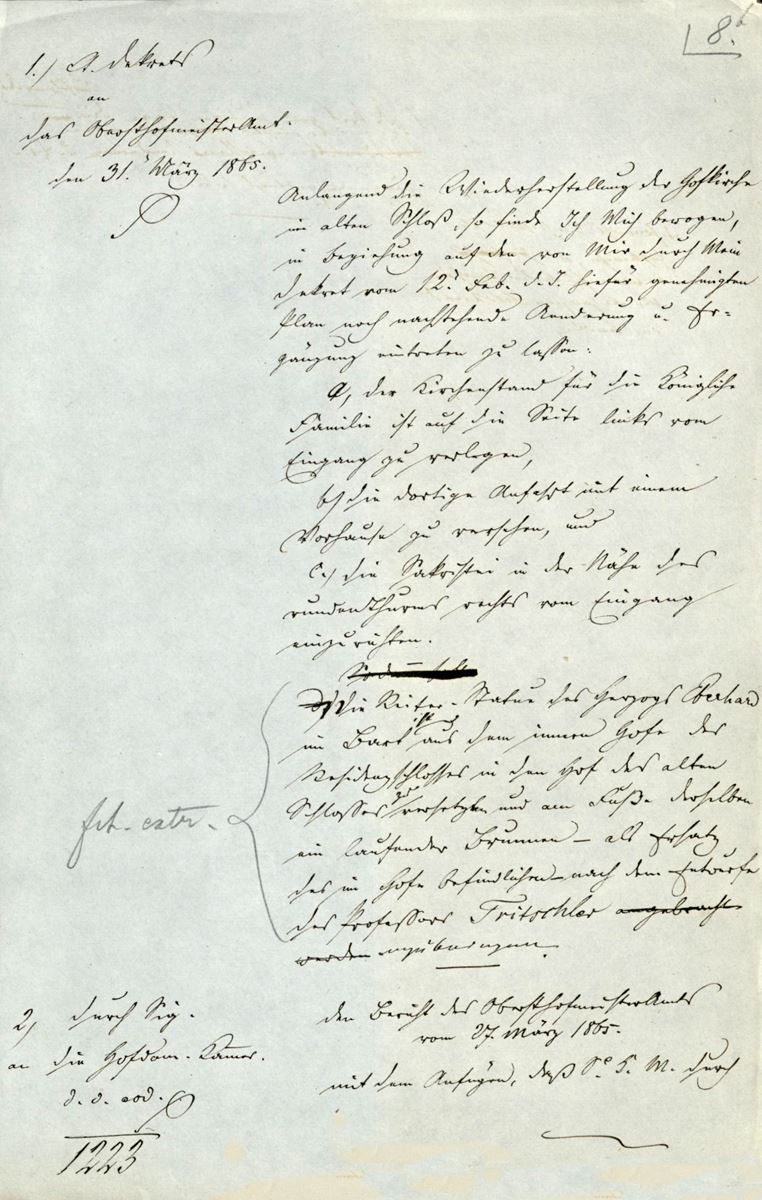 8.
1.) A. Dekrets
an
das Obersthofmeister Amt.
den 31. März 1865.
Anlangend die Wiederherstellung der Hofkirche
im alten Schloß, so finde Ich Mich bewogen,
in Beziehung auf den von Mir durch Mein
Dekret vom 12. Feb. d. J. hiefür genehmigten
Plan noch nachstehende Aenderung u. Er-
gänzung eintreten zu lassen:
a, der Kirchenstand für die Königliche
Familie ist auf die Seite links vom
Eingang zu verlegen,
b) die dortige Anfahrt mit einem
Vorhause zu versehen, und
c.) die Sakristei in der Nähe des
runden Thurms rechts vom Eingang
einzurichten.
die Reiter-Statue des Herzogs Eberhard
im Bart ist aus dem innern Hofe des
Residenzschlosses in den Hof des alten
Schlosses zu versetzen und am Fuße derselben
ein laufender Brunnen – als Ersatz
des im Hofe befindlichen – nach dem Entwurfe
des Professors Fritschler angebracht
werden anzubringen.
fct. extr.
2, durch Sig.
an die Hofdom. Kammer.
d. d. eod.
1223
den Bericht des Obersthofmeister Amts
vom 27. März 1865.
mit dem Anfügen, daß Se. K. M. durch